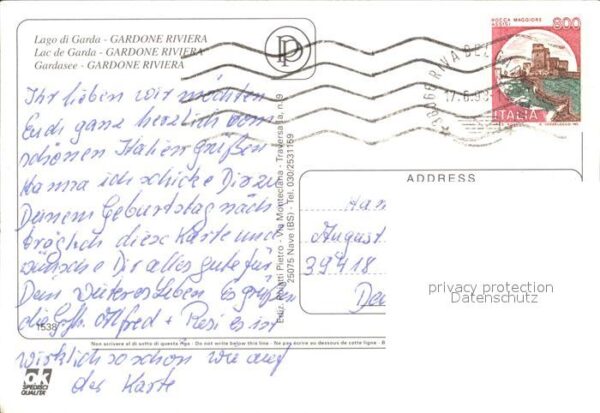 Lago di Garda - GARDONE RIVIERA
Lac de Garda - GARDONE RIVIERA
Gardasee - GARDONE RIVIERA
DP
ROCCA MAGGIORE
ASSISI
800
ITALIA
38066 RIVA DEL
17.6.9
Ihr lieben wir möchten
Euch ganz herzlich vom
schönen Italien grüßen
Hanna ich schicke Dir zu
Deinem Geburtstag nach
träglich diese Karte und
wünsche Dir alles gute für
Dein weiteres Leben Es grüßen
die Alfred + Resi Es ist
wirklich so schön wie auf
der Karte
Ediz. Pietro - Via Monteclana - Traversa n. 9
25075 Nave (BS) - Tel. 030/2531159
ADDRESS
Han
August
39418
Deu
privacy protection
Datenschutz
1538
Non scrivere al di sotto di questa riga - Do not write below this line - Ne pas écrire au dessous de cette ligne
ok
SPEDISCI
QUALITA'